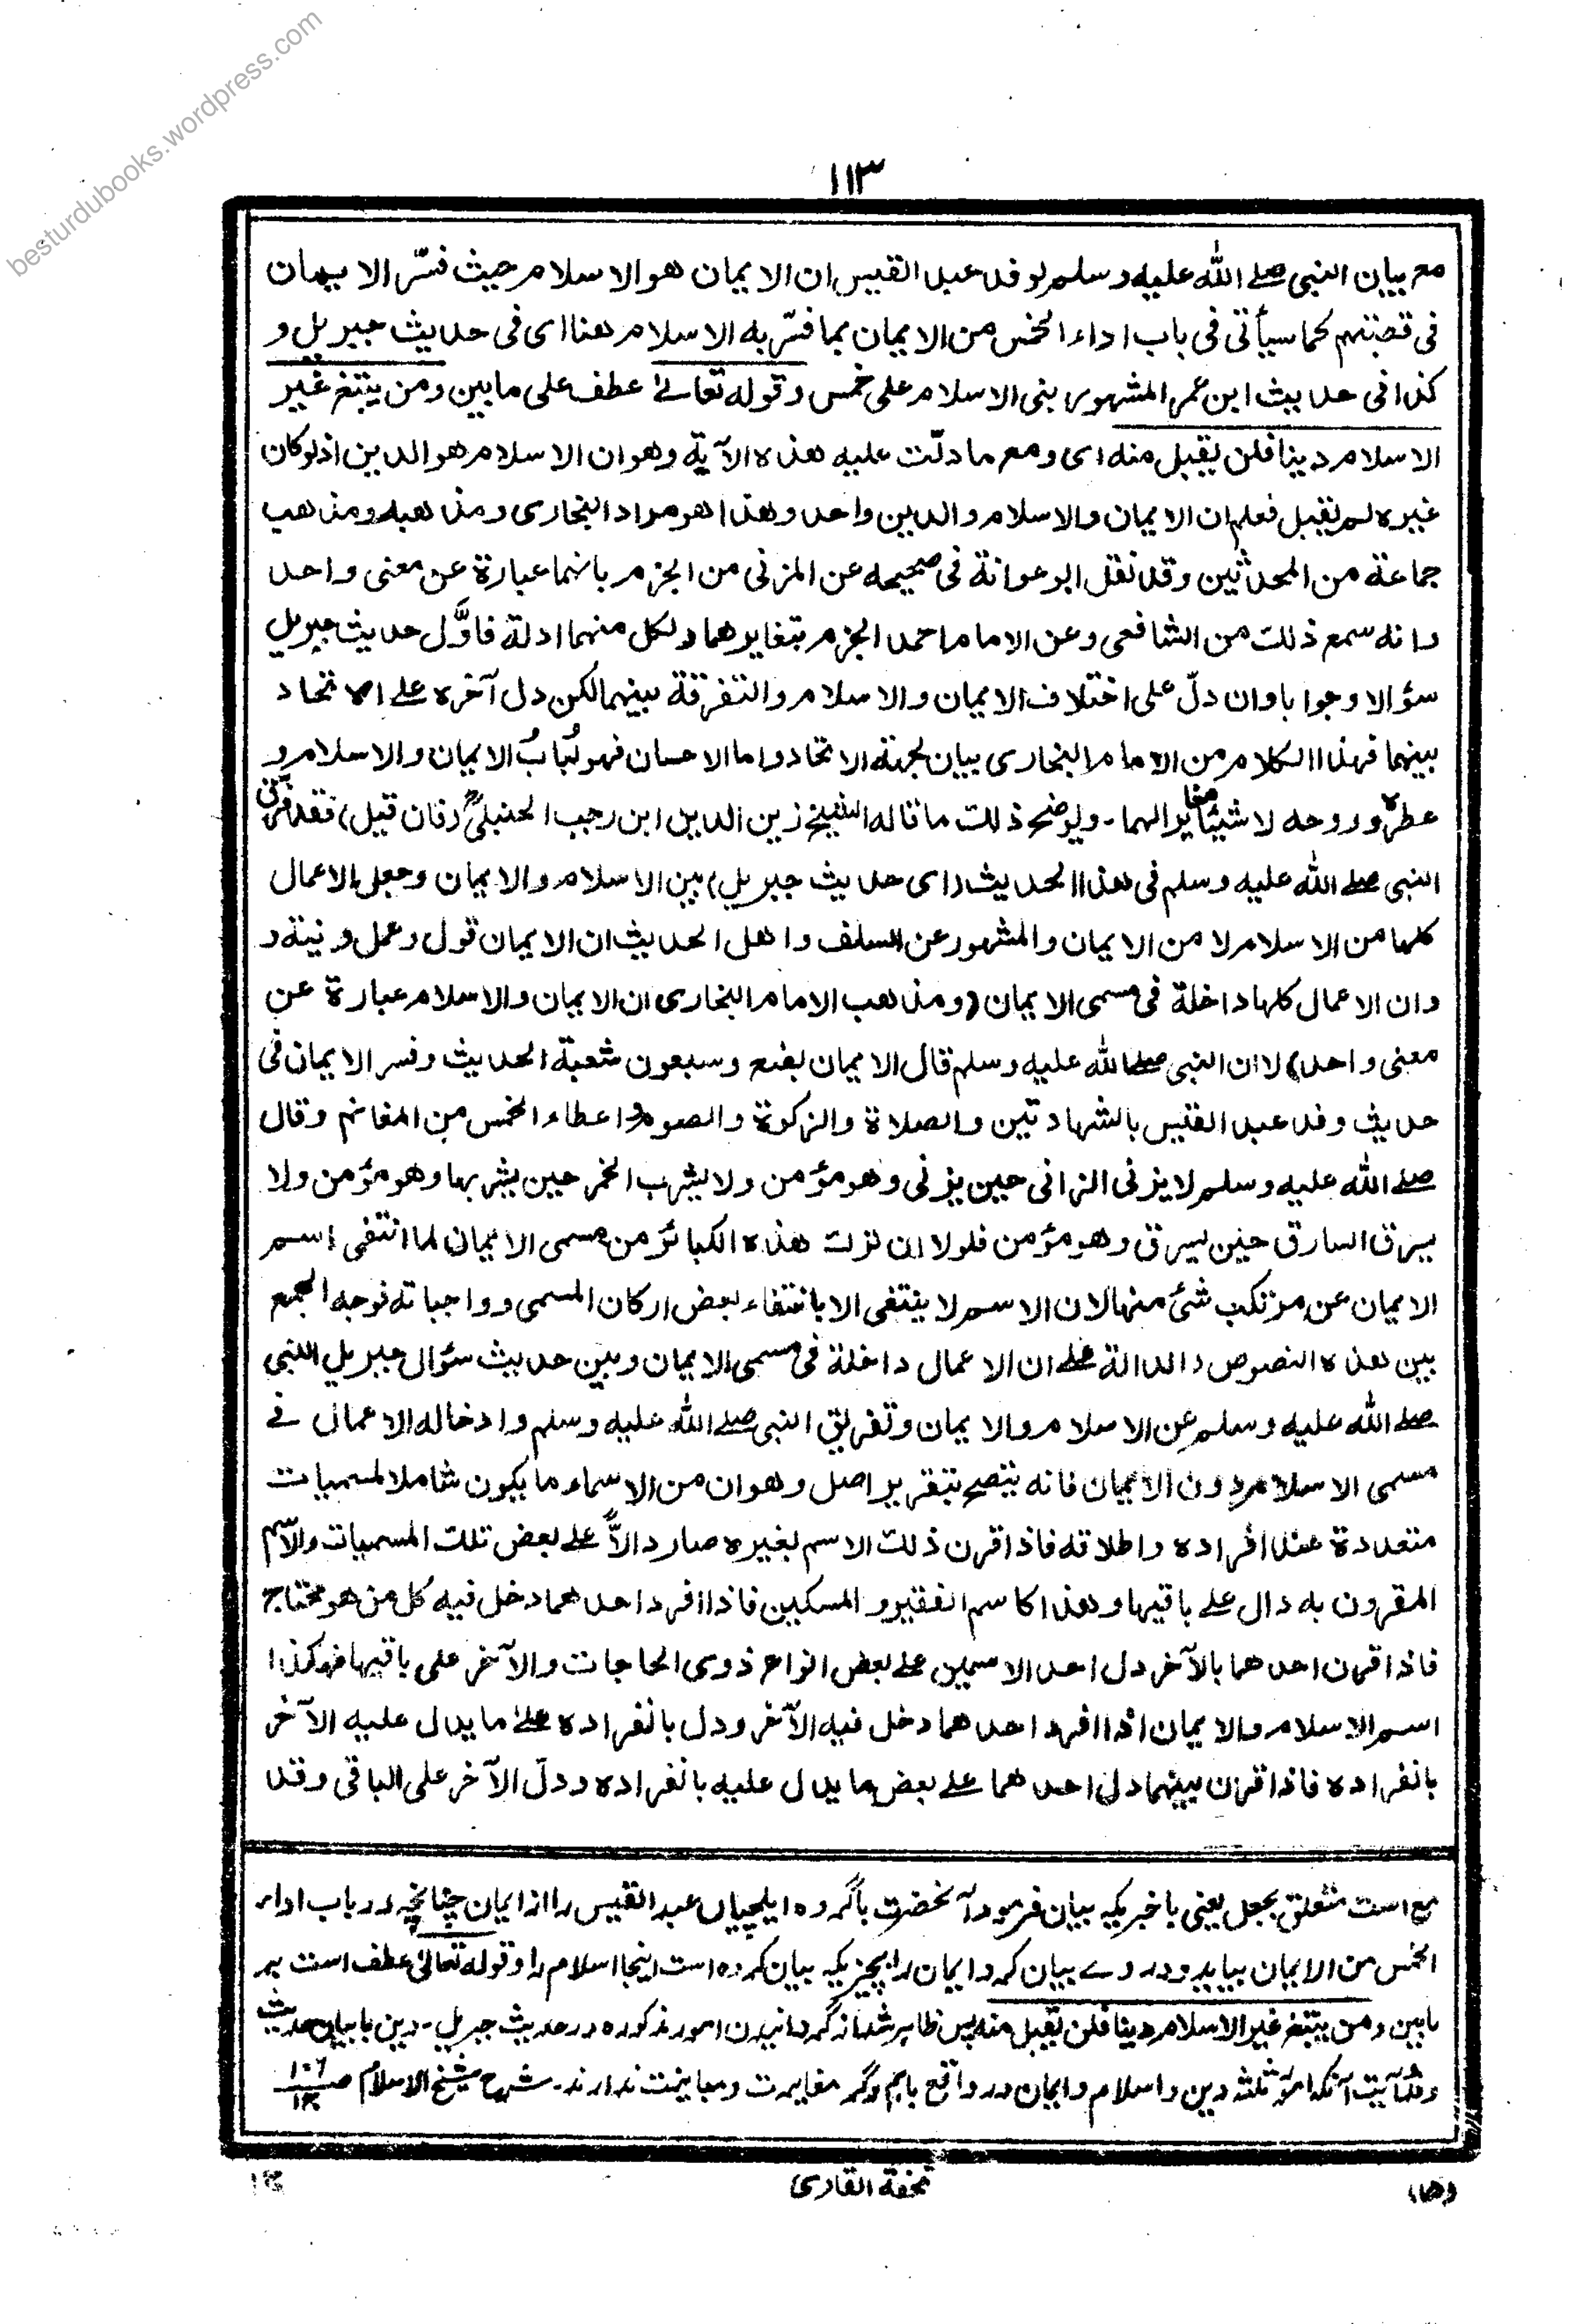 besturdubooks.wordpress.com
١١٣
مع بيان النبى صلے الله عليه وسلم لوفد عبد القيس ان الايمان هو الاسلام حيث فسّر الايمان
فى قصتهم كما سيأتى فى باب اداء الخمس من الايمان بما فسّر به الاسلام هنا اى فى حديث جبريل و
كذا فى حديث ابن عمر المشهور بنى الاسلام على خمس وقوله تعالے عطف على ما بين ومن يبتغ غير
الاسلام دينا فلن يقبل منه اى ومع ما دلّت عليه هذه الآية وهو ان الاسلام هو الدين اذ لو كان
غيره لم يقبل فعلم ان الايمان والاسلام والدين واحد وهذا هو مراد البخارى ومذهبه ومذهب
جماعة من المحدثين وقد نقل ابو عوانة فى صحيحه عن المزنى من الجزم بانهما عبارة عن معنى واحد
وانه سمع ذلك من الشافعى وعن الامام احمد الجزم بتغايرهما ولكل منهما ادلة فاوَّل حديث جبريل
سؤالا وجوابا وان دلّ على اختلاف الايمان والاسلام والتفرقة بينهما لكن دل آخره علے الاتحاد
بينهما فهذا الكلام من الامام البخارى بيان لجهة الاتحاد واما الاحسان فهو لُبابُ الايمان والاسلام و
عطره وروحه لا شيئا مغايرا لهما - ويوضح ذلك ما قاله الشيخ زين الدين ابن رجب الحنبلىؒ (فان قيل) فقد فرّق
النبى صلے الله عليه وسلم فى هذا الحديث (اى حديث جبريل) بين الاسلام والايمان وجعل الاعمال
كلها من الاسلام لا من الايمان والمشهور عن السلف واهل الحديث ان الايمان قول وعمل ونية و
وان الاعمال كلها داخلة فى مسمى الايمان (ومذهب الامام البخارى ان الايمان والاسلام عبارة عن
معنى واحد) لان النبى صلے الله عليه وسلم قال الايمان بضع وسبعون شعبة الحديث وفسر الايمان فى
حديث وفد عبد القيس بالشهادتين والصلاة والزكوة والصوم واعطاء الخمس من المغانم وقال
صلے الله عليه وسلم لا يزنى الزانى حين يزنى وهو مؤمن ولا يشرب الخمر حين يشربها وهو مؤمن ولا
يسرق السارق حين يسرق وهو مؤمن فلولا ان ترك هذه الكبائر من مسمى الايمان لما انتفى اسم
الايمان عن مرتكب شئ منها لان الاسم لا ينتفى الا بانتفاء بعض اركان المسمى وواجباته فوجه الجمع
بين هذه النصوص (الدالة علے ان الاعمال داخلة فى مسمى الايمان وبين حديث سؤال جبريل النبى
صلے الله عليه وسلم عن الاسلام والايمان وتفريق النبى صلے الله عليه وسلم وادخاله الاعمال فے
مسمى الاسلام دون الايمان فانه يتضح بتقرير اصل وهو ان من الاسماء ما يكون شاملا لمسميات
متعددة عند افراده واطلاقه فاذا قرن ذلك الاسم بغيره صار دالاًّ علے بعض تلك المسميات والاسم
المقرون به دال علے باقيها وهذا كاسم الفقير والمسكين فاذا افرد احدهما دخل فيه كل من هو محتاج
فاذا قرن احدهما بالآخر دل احد الاسمين علے بعض انواع ذوى الحاجات والآخر على باقيها فهكذا
اسم الاسلام والايمان اذا افرد احدهما دخل فيه الآخر ودل بانفراده علے ما يدل عليه الآخر
بانفراده فاذا قرن بينهما دل احدهما علے بعض ما يدل عليه بانفراده ودلّ الآخر على الباقى وقد
مع است متعلق بجعل يعنى با خبريكه بيان فرمود آنحضرت باگروه ايلچياں عبد القيس را از ايمان چنانچه در باب اداء
الخمس من الايمان بيايد ودر وے بيان كرد ايمان را بچيزيكه بيان كرده است اينجا اسلام را وقوله تعالىٰ عطف است بر
ما بين ومن يبتغ غير الاسلام دينا فلن يقبل منه پس ظاهر شد از گردانيدن امور مذكوره در حديث جبريل - دين با بيان حديث
آيت آنكه امور ثلثه دين و اسلام و ايمان در واقع باهم دگر مغايرت و مباينت ندارند - شرح شيخ الاسلام صـ ١٠٦ ج١
تحفة القارى